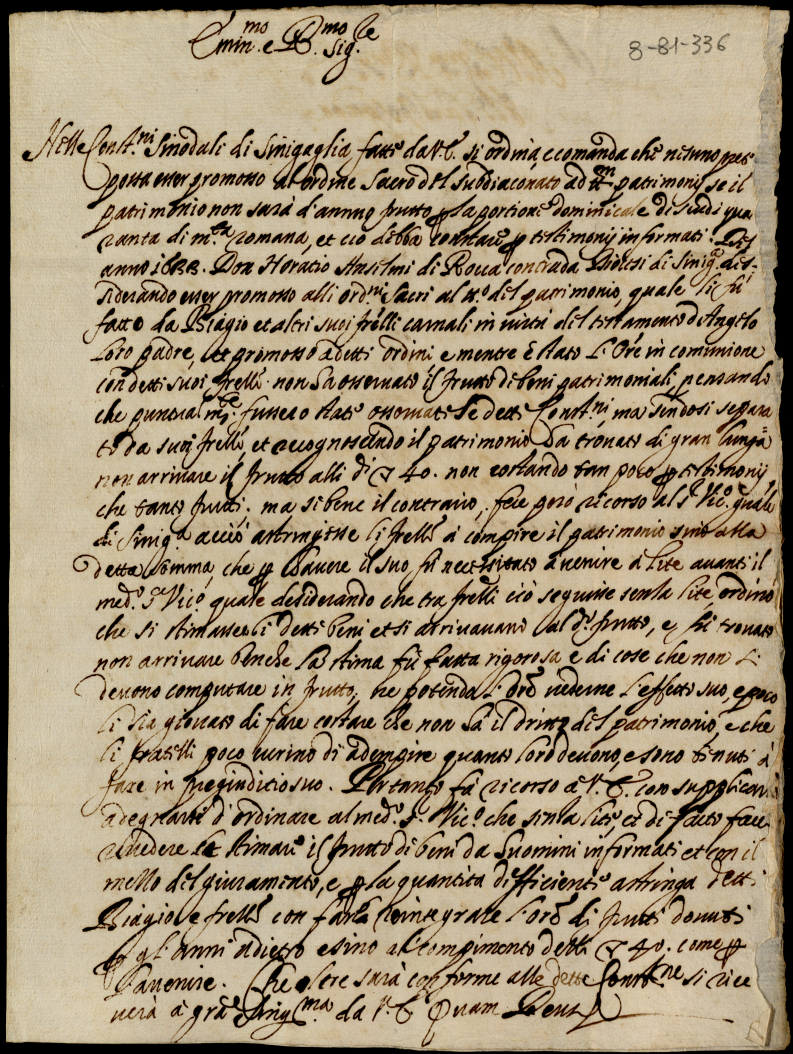 Emin.mo e R.mo Sig.re
8-81-336
Nelle Const.ni Sinodali di Sinigaglia fatte da V.E. si ordina, e comanda che nisuno
possa esser promosso al ordine Sacro del Subdiaconato ad patrimonij se il
patrimonio non sarà d'annuo frutto p la portione dominicale di scudi qua
ranta di m.ta romana, et ciò debba constare p testimonij informati. Del
anno Don Horatio Anselmi di Rocca contrada Diocesi di Sinig.a de
siderando esser promosso alli ord.ni Sacri al del patrimonio, quale li fù
fatto da Biagio et altri suoi frelli carnali in virtù del testamento d'Angelo
loro padre, et promosso a detti ordini e mentre è stato l'Ore in comunione
con detti suoi frelli non ha osservato il frutto di beni patrimoniali, pensando
che puntual m.te fussero state osservate le dette Const.ni, ma sendosi separa
to da suoi frelli, et recognoscendo il patrimonio ha trovato di gran lunga
non arrivare il frutto alli d.i 40. non costando tan poco p testimonij
che tanto frutti. ma si bene il contrario, fece però ricorso al S.r Vic.o quale
di Sinig.a acciò astringesse li frelli à compire il patrimonio sino alla
detta somma, che p havere il suo fù necessitato à venire à lite avanti il
med.o S.r Vic.o quale desiderando che tra frelli ciò seguisse senza lite, ordinò
che si stimassero li detti beni et si arrivavano al d.o frutto, e fù trovato
non arrivare benche la stima fù fatta rigorosa e di cose che non si
devono computare in frutto, ne potendo l'Ore vederne l'effetto suo, e poco
li hà giovato di fare costare che non hà il dritto del patrimonio, e che
li fratelli poco curino di adempire quanto loro devono, e sono tenuti à
fare in pregiuditio suo. Pertanto fà ricorso à V.E. con supplicar
a degnarsi d'ordinare al med.o S.r Vic.o che senza lite, et de facto facci
rivedere et stimare il frutto di beni da huomini informati et con il
mezzo del giuramento, e p la quantita defficiente astringa detti
Biagio e frelli con farli reintegrare l'Ore di frutti devuti
p gl'anni adietro e sino al compimento delli 40. come p
l'avenire. Che oltre sarà conforme alle dette Const.ne si rice
verà à gra.e sing.ma da V.E. Quam Deus